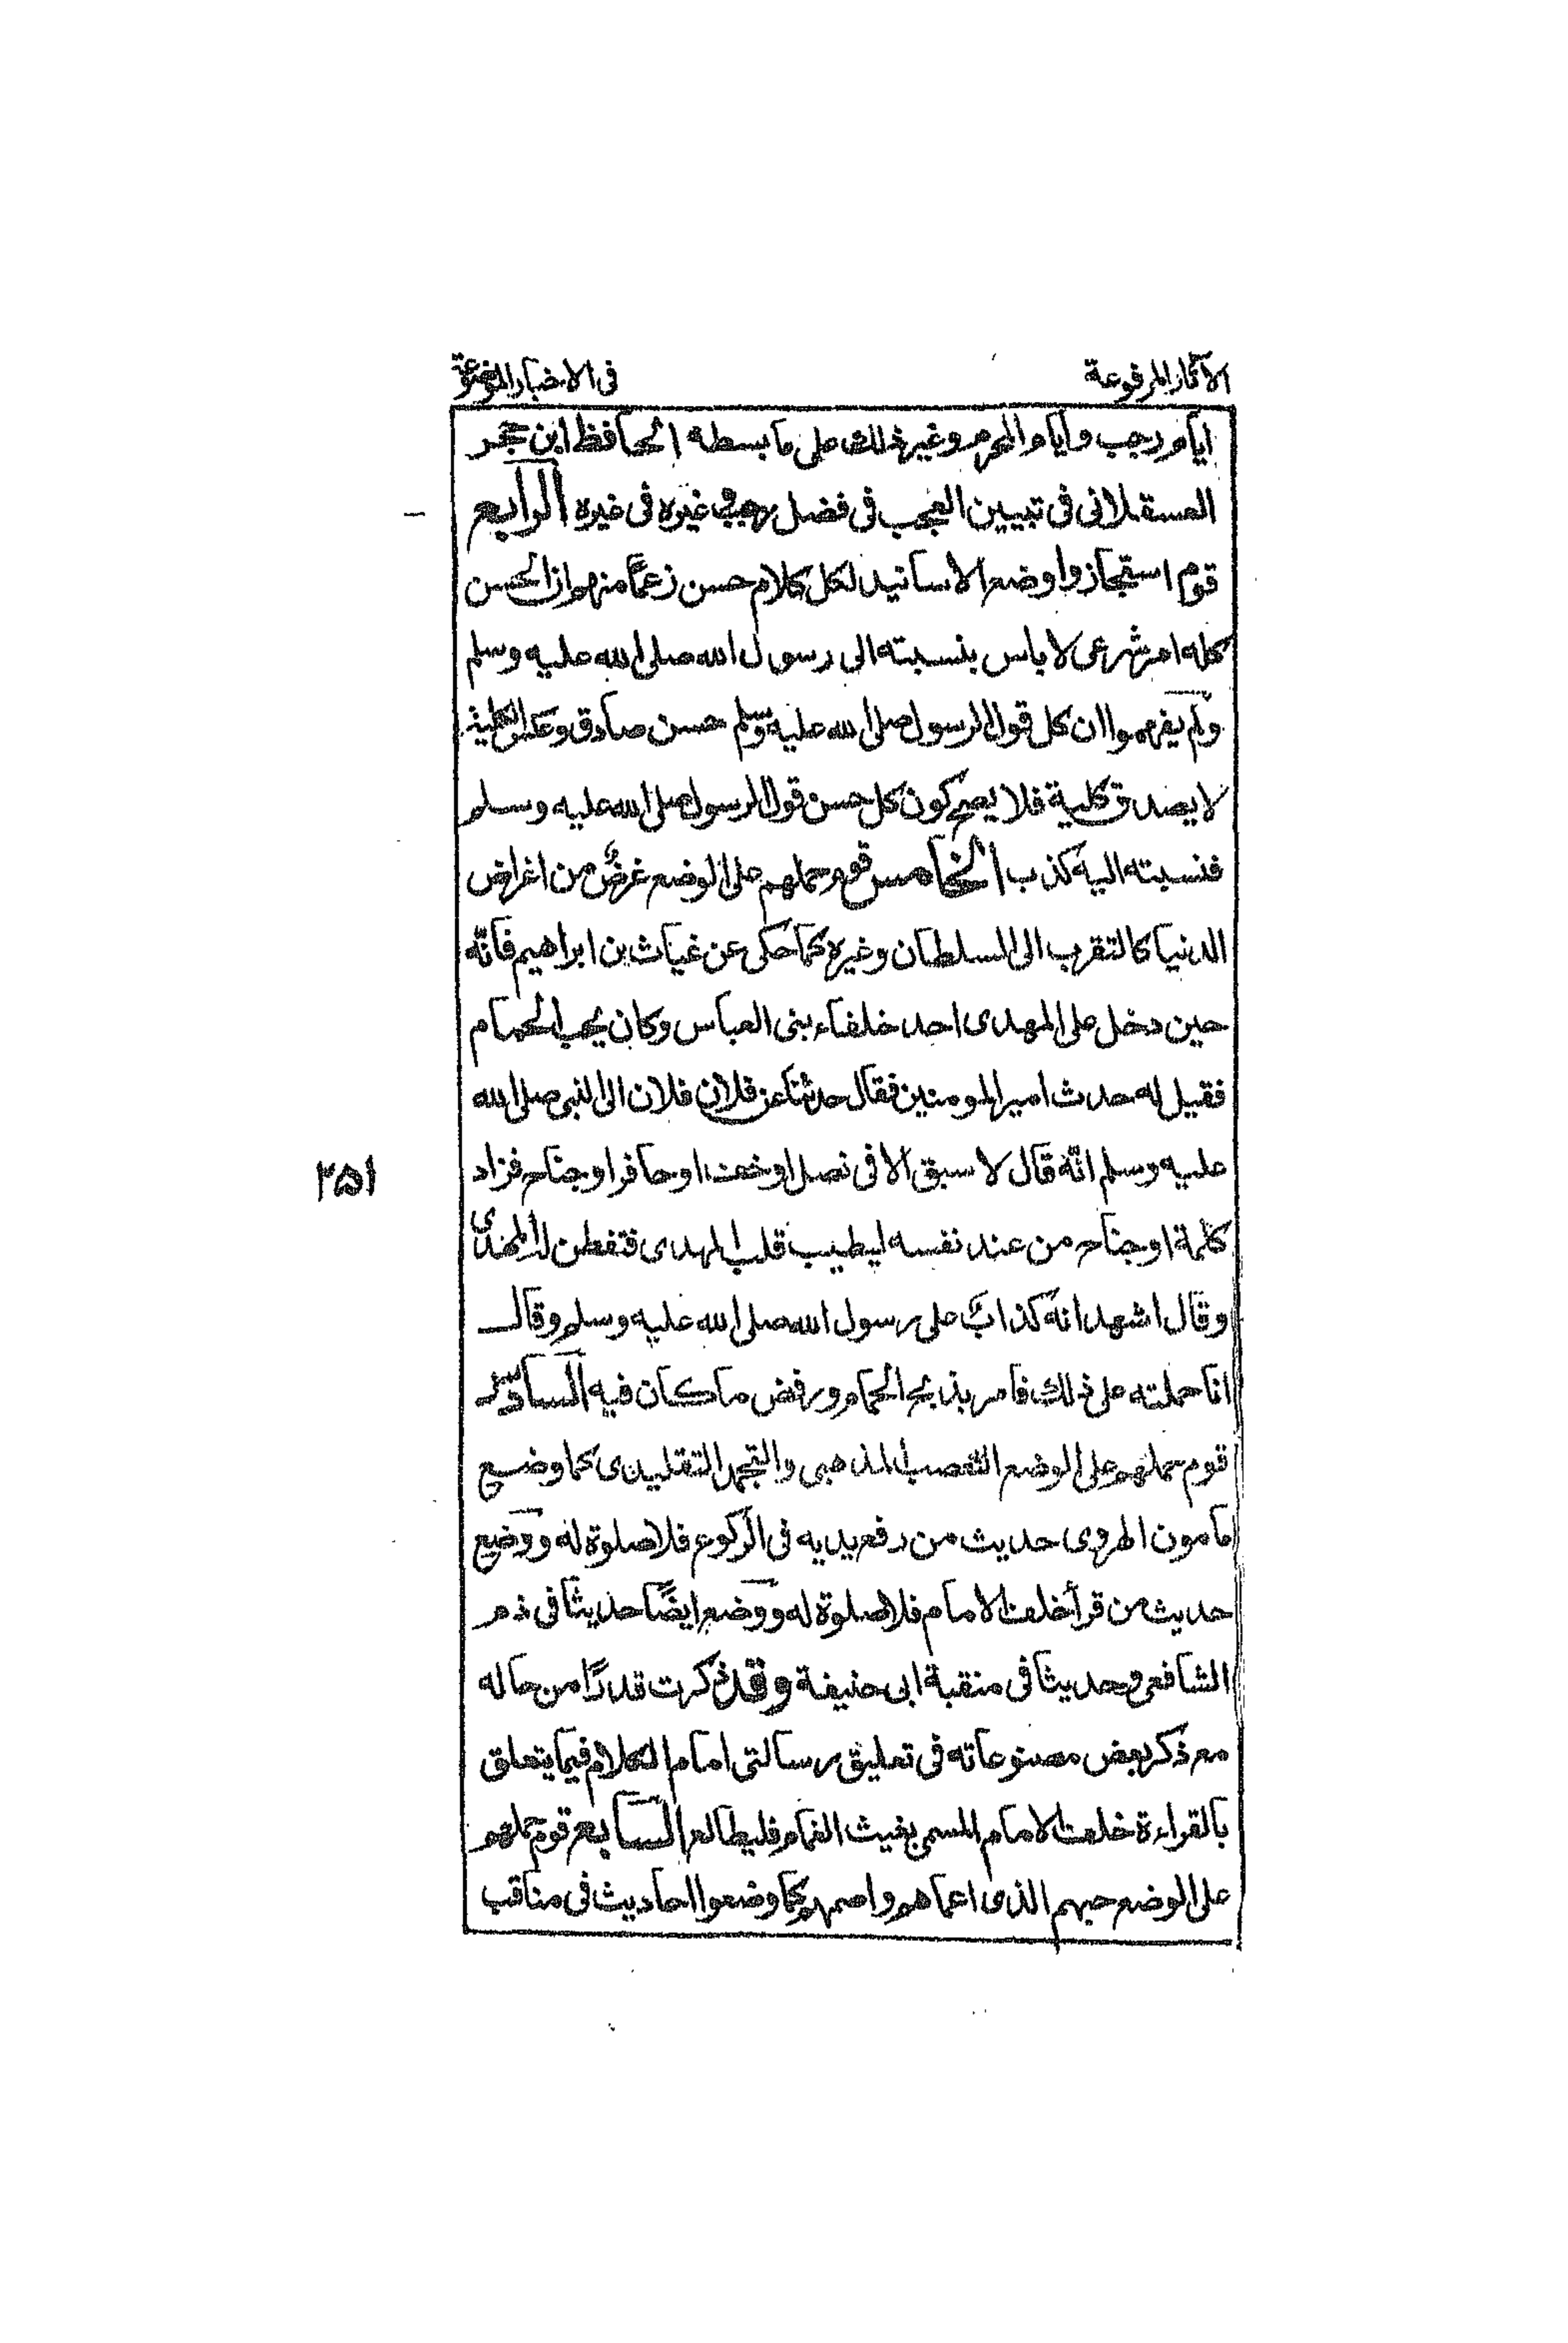 الآثار المرفوعة
فى الاخبار الموضوعة
ايام رجب وايام المحرم وغير ذلك على ما بسطه الحافظ ابن حجر
العسقلانى فى تبيين العجب فى فضل رجب وغيره فى غيره الرابع
قوم استجازوا وضع الاسانيد لكل كلام حسن زعمًا منهم ان الحسن
كله امر شرعى لا باس بنسبته الى رسول الله صلى الله عليه وسلم
ولم يفهموا ان كل قول الرسول صلى الله عليه وسلم حسن صادق وعكس الكلية
لا يصدق كلية فلا يصح كون كل حسن قول الرسول صلى الله عليه وسلم
فنسبته اليه كذب الخامس قوم حملهم على الوضع غرض من اغراض
الدنيا كالتقرب الى السلطان وغيره كما حكى عن غياث بن ابراهيم فانّه
حين دخل على المهدى احد خلفاء بنى العباس وكان يحب الحمام
فقيل له حدث امير المومنين فقال حدثنا عن فلان فلان الى النبى صلى الله
عليه وسلم انّه قال لا سبق الا فى نصل او خف او حافر او جناح فزاد
كلمة او جناح من عند نفسه ليطيب قلب المهدى فتفطن له المهدى
وقال اشهد انه كذابٌ على رسول الله صلى الله عليه وسلم وقال
انا حملته على ذلك فامر بذبح الحمام ورفض ما كان فيه السادس
قوم حملهم على الوضع التعصب المذهبى والتجمد التقليدى كما وضع
مامون الهروى حديث من رفع يديه فى الركوع فلا صلوة له ووضع
حديث من قرأ خلف الامام فلا صلوة له ووضع ايضًا حديثا فى ذم
الشافعى وحديثا فى منقبة ابى حنيفة وقد ذكرت قدرًا من حاله
مع ذكر بعض مصنوعاته فى تعليق رسالتى امام الكلام فيما يتعلق
بالقراءة خلف الامام المسمى بغيث الغمام فليطالع السابع قوم حملهم
على الوضع حبهم الذى اعماهم واصمهم كما وضعوا احاديث فى مناقب
٢٥١